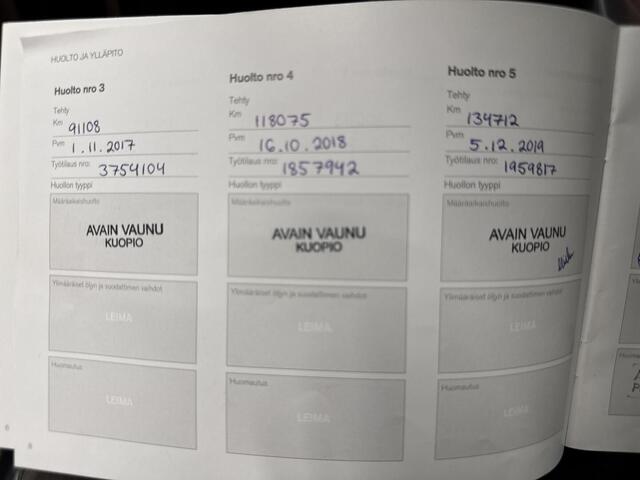 HUOLTO JA YLLÄPITO
Huolto nro 3
Tehty
Km 91108
Pvm 1.11.2017
Työtilaus nro: 3754104
Huollon tyyppi
Määräaikaishuolto
AVAIN VAUNU
KUOPIO
Ylimääräiset öljyn ja suodattimen vaihdot
LEIMA
Huomautus
LEIMA
Huolto nro 4
Tehty
Km 118075
Pvm 16.10.2018
Työtilaus nro: 1857942
Huollon tyyppi
Määräaikaishuolto
AVAIN VAUNU
KUOPIO
Ylimääräiset öljyn ja suodattimen vaihdot
LEIMA
Huomautus
LEIMA
Huolto nro 5
Tehty
Km 134712
Pvm 5.12.2019
Työtilaus nro: 1959817
Huollon tyyppi
Määräaikaishuolto
AVAIN VAUNU
KUOPIO
Ylimääräiset öljyn ja suodattimen vaihdot
LEIMA
Huomautus
LEIMA
6
8